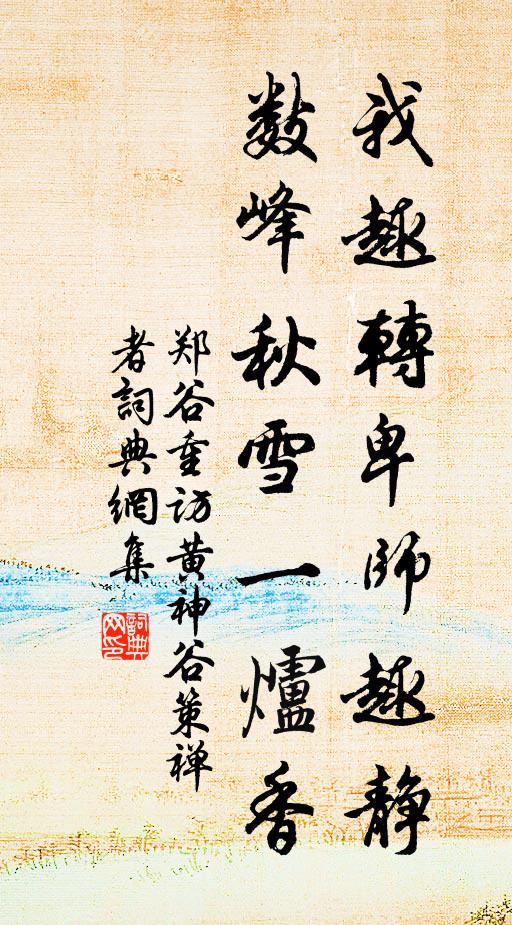 我趣轉卑師趣静
數峰秋雪一爐香
郑谷重访黄神谷策禅
者詞典網集
詞典
网印